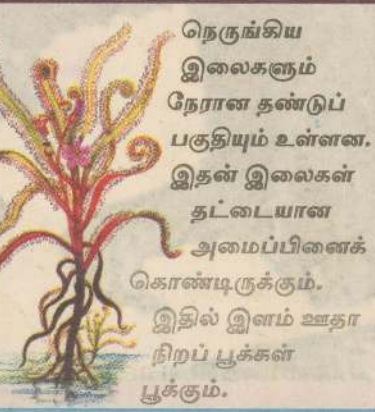 நெருங்கிய
இலைகளும்
நேரான தண்டுப்
பகுதியும் உள்ளன.
இதன் இலைகள்
தட்டையான
அமைப்பினைக்
கொண்டிருக்கும்.
இதில் இளம் ஊதா
நிறப் பூக்கள்
பூக்கும்.